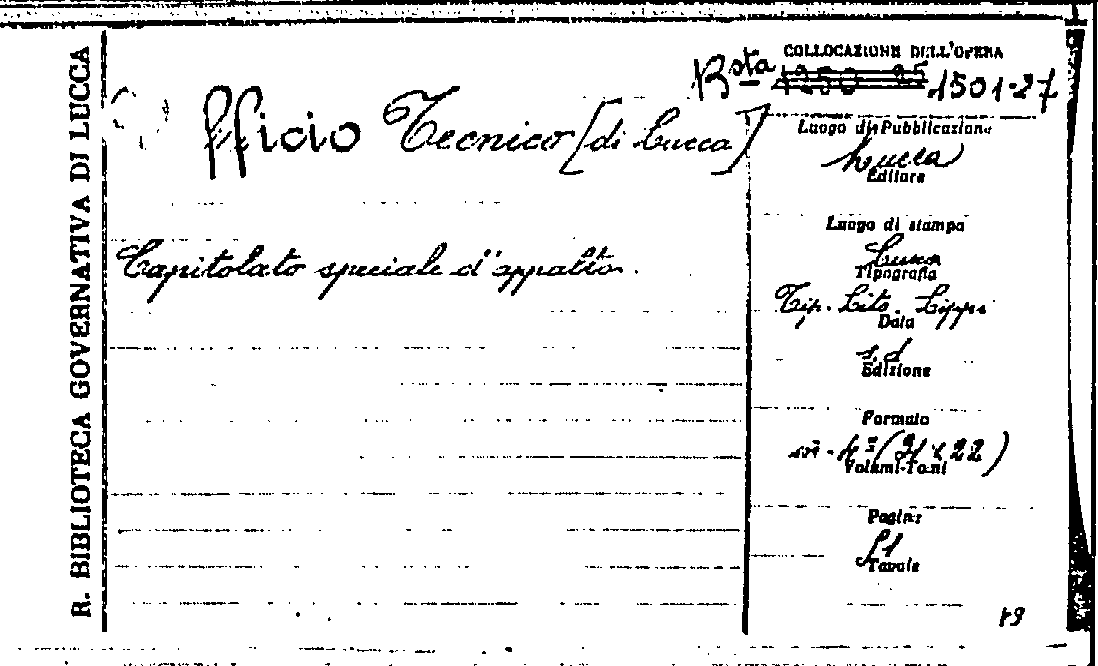 R. BIBLIOTECA GOVERNATIVA DI LUCCA
COLLOCAZIONE DELL'OPERA
Bsta 1250 25 1501-27
Ufficio Tecnico [di Lucca]
Capitolato speciale d'appalto.
Luogo di Pubblicazione
Lucca
Editore
Luogo di stampa
Lucca
Tipografia
Tip. Lito. Lippi
Data
s. d
Edizione
Formato
in-4° (31x22)
Volumi-Tomi
Pagine
51
Tavole